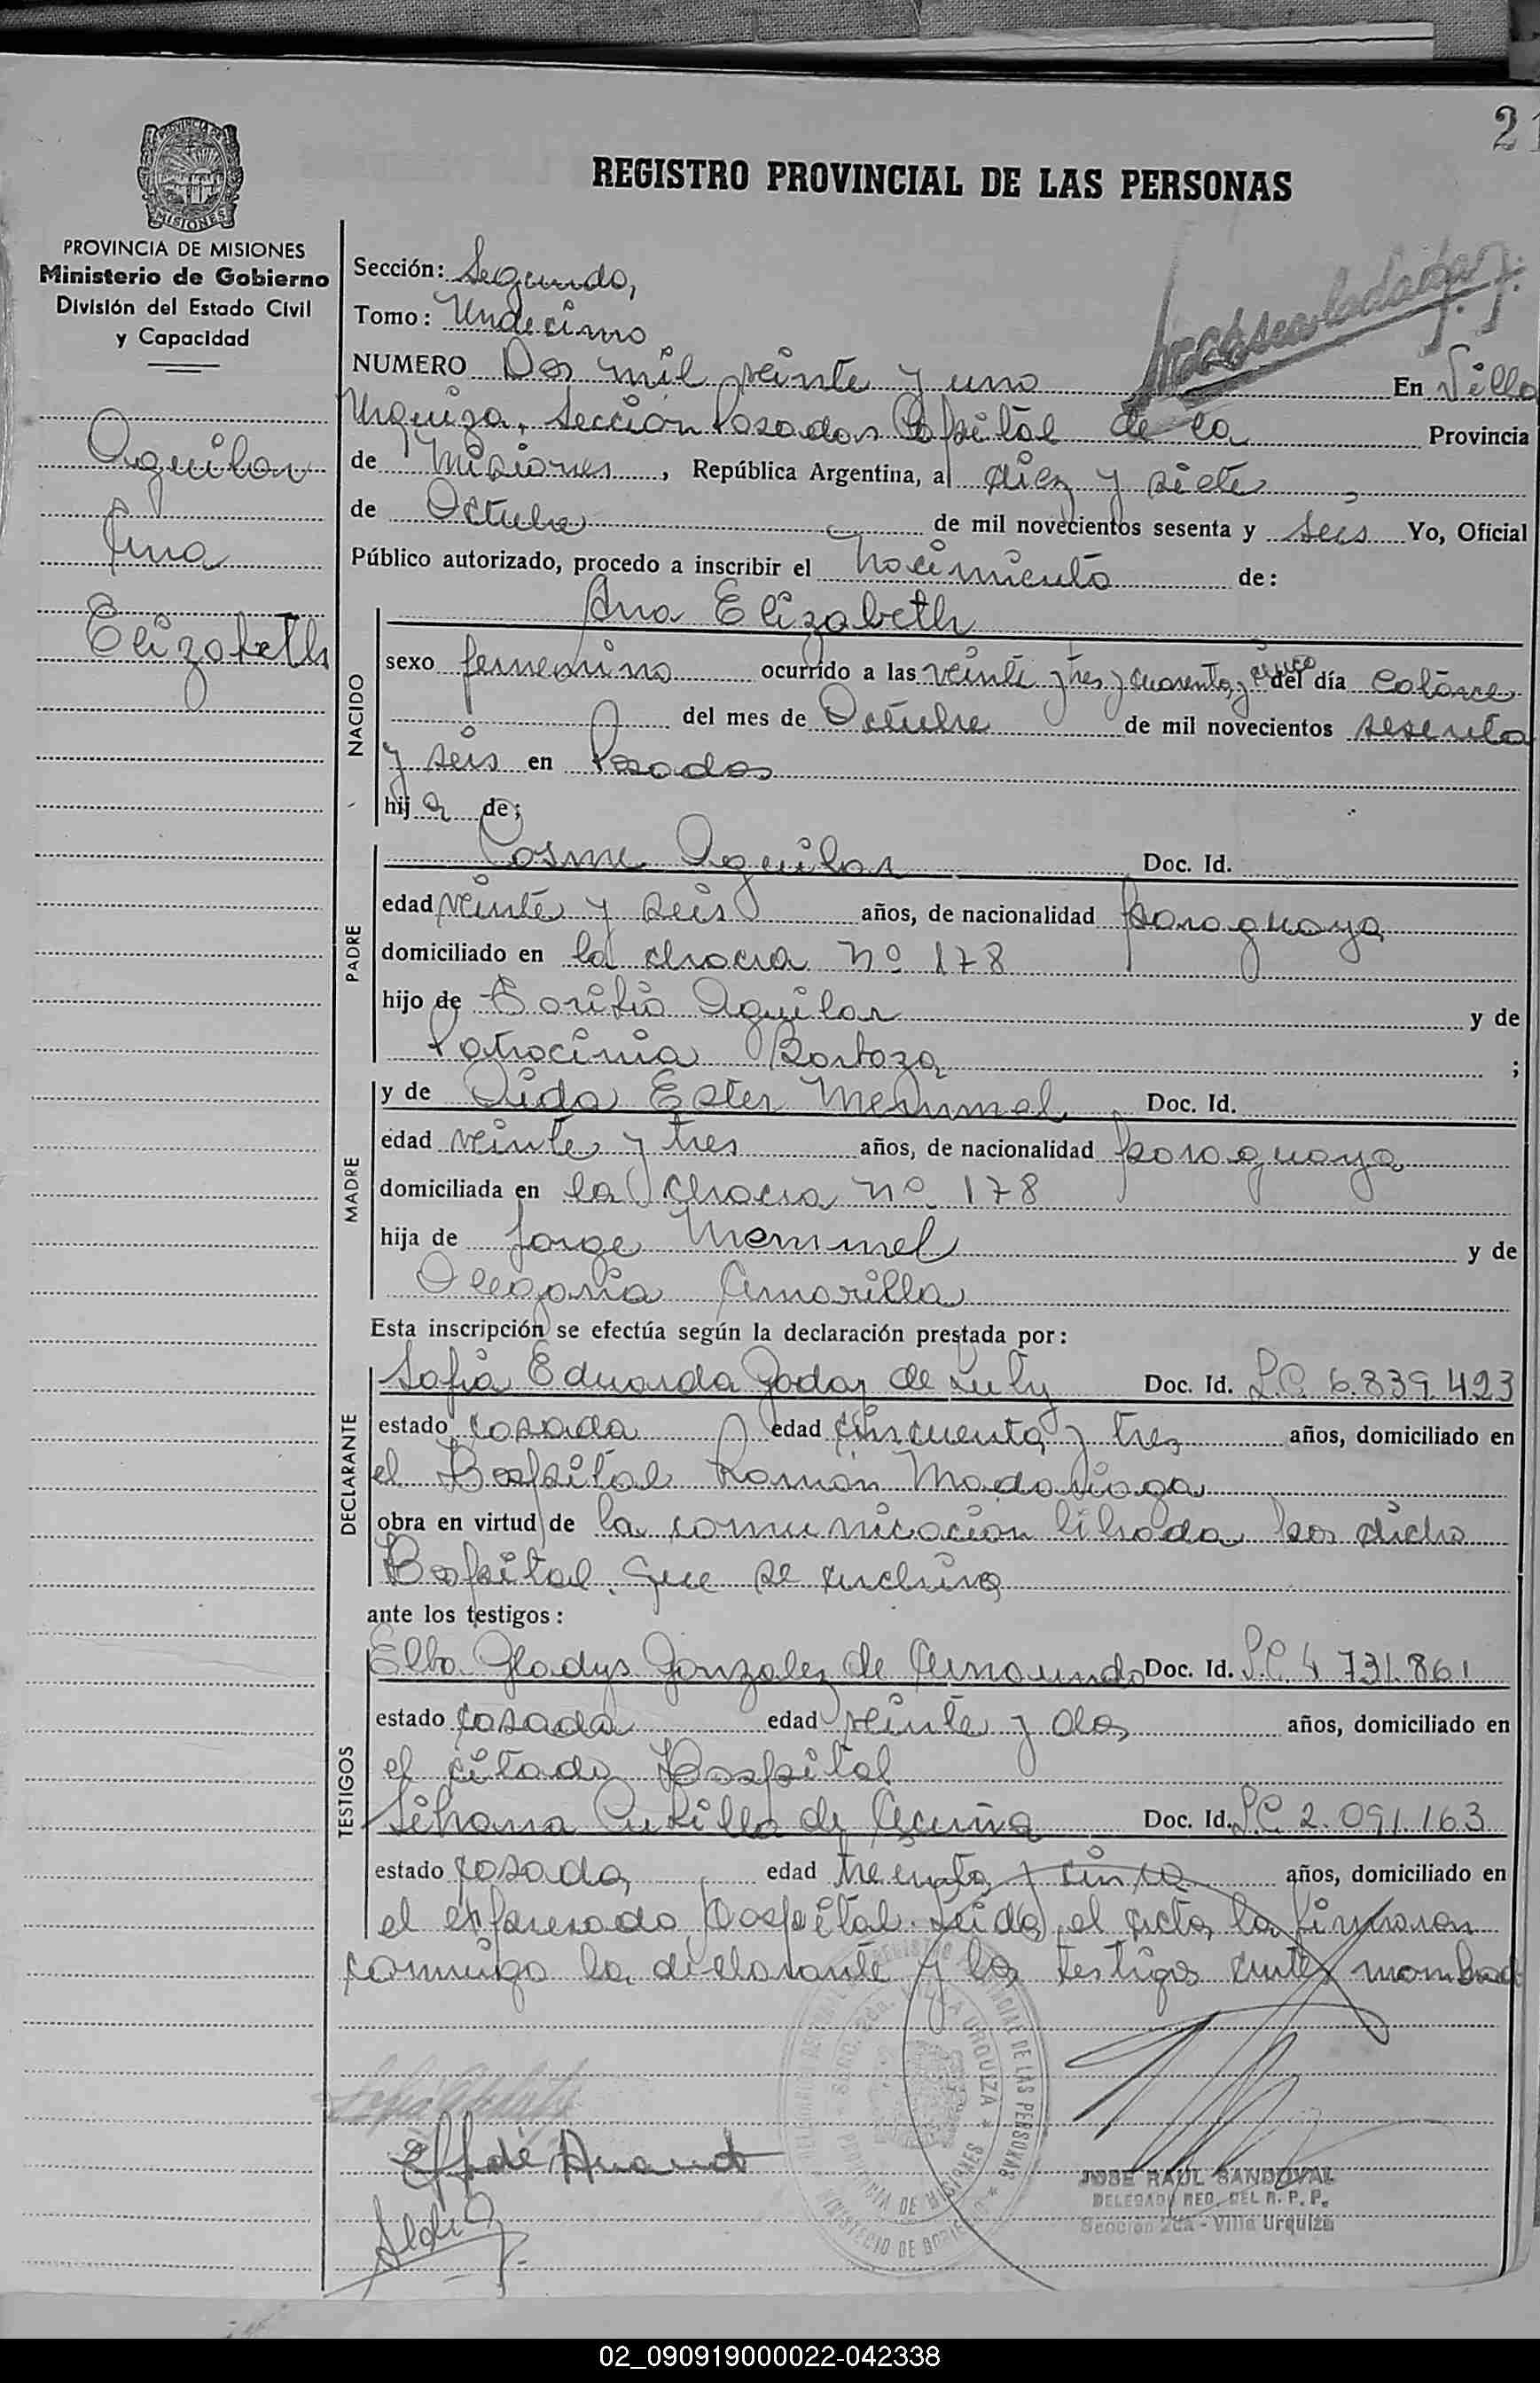 21
REGISTRO PROVINCIAL DE LAS PERSONAS
PROVINCIA DE MISIONES
Ministerio de Gobierno
División del Estado Civil
y Capacidad
Aguilar
Ana
Elizabeth
Sección: Segunda,
Tomo: Undecimo
NUMERO Dos mil veinte y uno En Villa
Urquiza, Sección Posadas Hospital de la Provincia
de Misiones, República Argentina, a diez y siete
de Octubre de mil novecientos sesenta y seis Yo, Oficial
Público autorizado, procedo a inscribir el nacimiento de:
NACIDO
Ana Elizabeth
sexo femenino ocurrido a las veinte y tres y cuarenta y cinco del día catorce
del mes de Octubre de mil novecientos sesenta
y seis en Posadas
hija de;
PADRE
Cosme Aguilar Doc. Id.
edad veinte y seis años, de nacionalidad paraguaya
domiciliado en la chacra Nº 178
hijo de Aguilar y de
Patrocinia Bortoza ;
MADRE
y de Aida Ester Memmel Doc. Id.
edad veinte y tres años, de nacionalidad paraguaya
domiciliada en la chacra nº 178
hija de Jorge Memmel y de
Olegaria Amarilla
Esta inscripción se efectúa según la declaración prestada por:
DECLARANTE
Sofia Eduarda Godoy de Doc. Id. L.C. 6.839.423
estado casada edad cincuenta y tres años, domiciliado en
el Hospital Ramón Madariaga
obra en virtud de la comunicación librada por dicho
Hospital, que se archiva
ante los testigos:
TESTIGOS
Elba Gladys Gonzalez de Doc. Id. L.C. 4.731.861
estado casada edad veinte y dos años, domiciliado en
el citado Hospital
de Acuña Doc. Id. L.C. 2.091.163
estado casada edad treinta y cinco años, domiciliado en
el expresado Hospital. Leida el acta, la firmaron
conmigo la declarante y los testigos antes nombrad
REGISTRO PROVINCIAL DE LAS PERSONAS
VILLA URQUIZA
PROVINCIA DE MISIONES
MINISTERIO DE GOBIERNO
JOSE RAUL SANDOVAL
DELEGADO REG. DEL R. P. P.
Sección 2da - Villa Urquiza
02_090919000022-042338